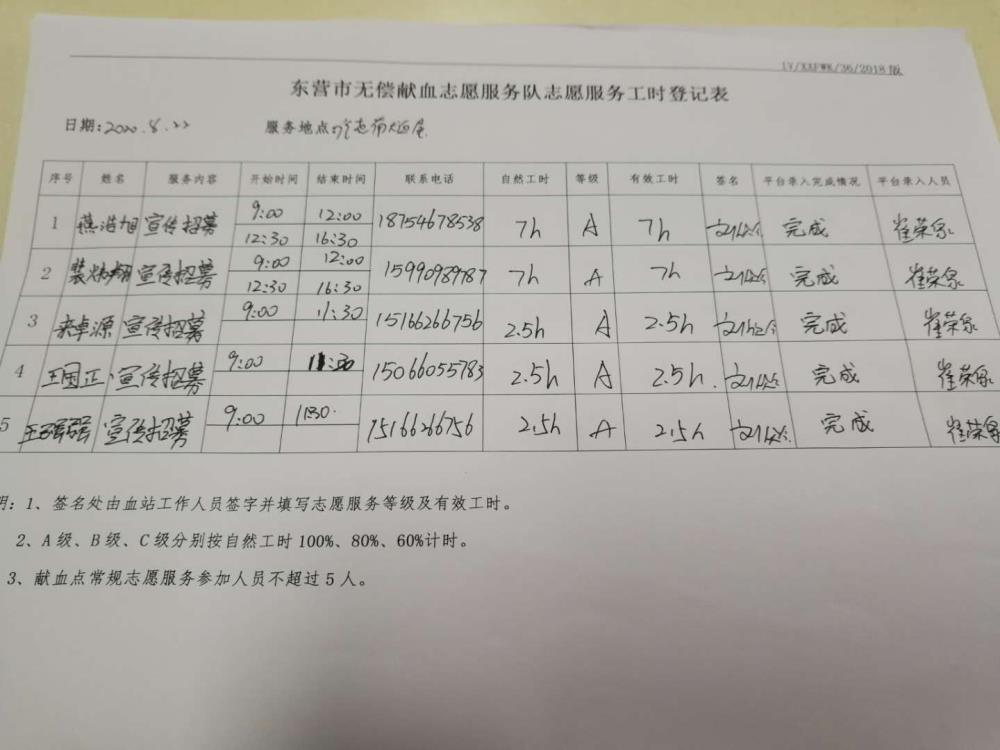 1V/XXFWK/36/2018版
东营市无偿献血志愿服务队志愿服务工时登记表
日期:2020.8.22 服务地点:
序号 姓名 服务内容 开始时间 结束时间 联系电话 自然工时 等级 有效工时 签名 平台录入完成情况 平台录入人员
1 燕浩旭 宣传招募 9:00 12:00 18754678538 7h A 7h 完成 崔荣泉
12:30 16:30
2 宣传招募 9:00 12:00 15990989787 7h A 7h 完成 崔荣泉
12:30 16:30
3 来卓源 宣传招募 9:00 11:30 15166266756 2.5h A 2.5h 完成 崔荣泉
4 王国正 宣传招募 9:00 11:30 15066055783 2.5h A 2.5h. 完成 崔荣泉
5 宣传招募 9:00 1130. 15166266756 2.5h A 2.5h 完成 崔荣泉
明：1、签名处由血站工作人员签字并填写志愿服务等级及有效工时。
2、A级、B级、C级分别按自然工时100%、80%、60%计时。
3、献血点常规志愿服务参加人员不超过5人。